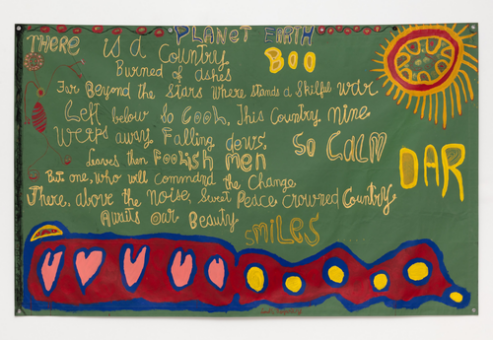 PLANET EARTH
THERE is a Country BOO
Burned of ashes
Far Beyond the Stars Where stands a Skilful
Left below So Cool, This Country mine
Weeps away Falling So CALM
Leaves then Foolish men DAR
But one, who will command the Change
There, above the Noise, Sweet Peace crowned Country
Awaits Our Beauty
SMiLES